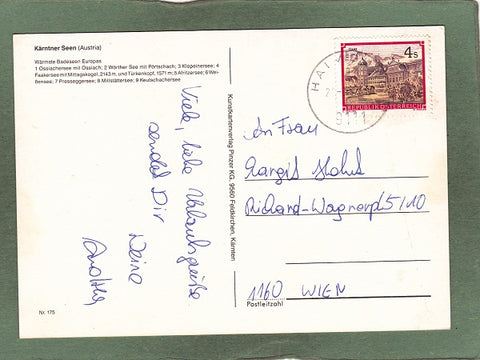 Kärntner Seen (Austria)
Wärmste Badeseen Europas
1 Ossiachersee mit Ossiach; 2 Wörther See mit Pörtschach; 3 Klopeinersee; 4
Faakersee mit Mittagskogel, 2143 m, und Türkenkopf, 1571 m; 5 Afritzersee; 6 Wei-
ßensee; 7 Presseggersee; 8 Millstättersee; 9 Keutschachersee
Viele, liebe Urlaubsgrüße
sendet Dir
Deine
Nr. 175
Kunstkartenverlag Pinzer KG, 9560 Feldkirchen, Kärnten
4 S
REPUBLIK ÖSTERREICH
9111
An Frau
Margit
Richard-Wagnerpl 5/10
1160 WIEN
Postleitzahl